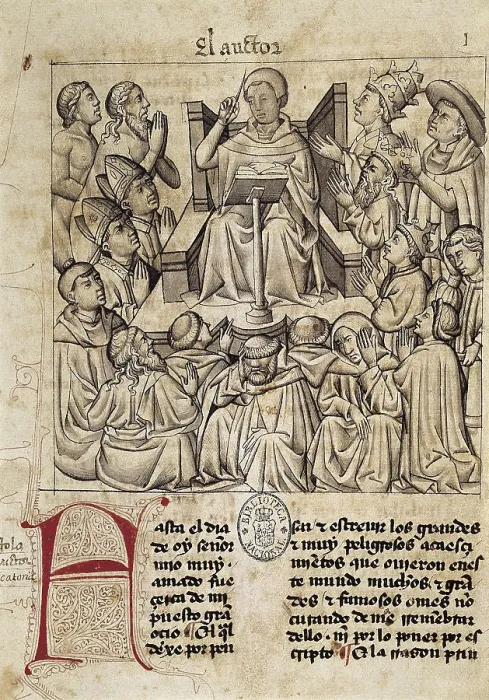 El auctor
1
Hasta el dia
de oy señor
mio muy
amado fue
çerca de mi
puesto grã
ocio ¶ El q̃l
dexe por pen
sar & escreuir los grandes
& muy peligrosos acaesçi
mientos que ouieron enes
te mundo muchos & grã
des & famosos omes nõ
curando de me rremẽbrar
dello. nĩ por lo poner por es
cripto ¶ E la rrason prin
BIBLIOTECA
NACIONAL